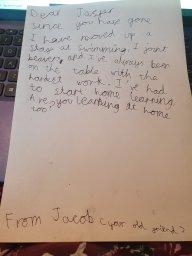 Dear Jasper
since you have gone
I have moved up a
stage at swimming, I joint
beavers and I've always been
on the table with the
hardest work. I've had
to start home learning.
Are you learning at home
too?
From Jacob (your old friend)